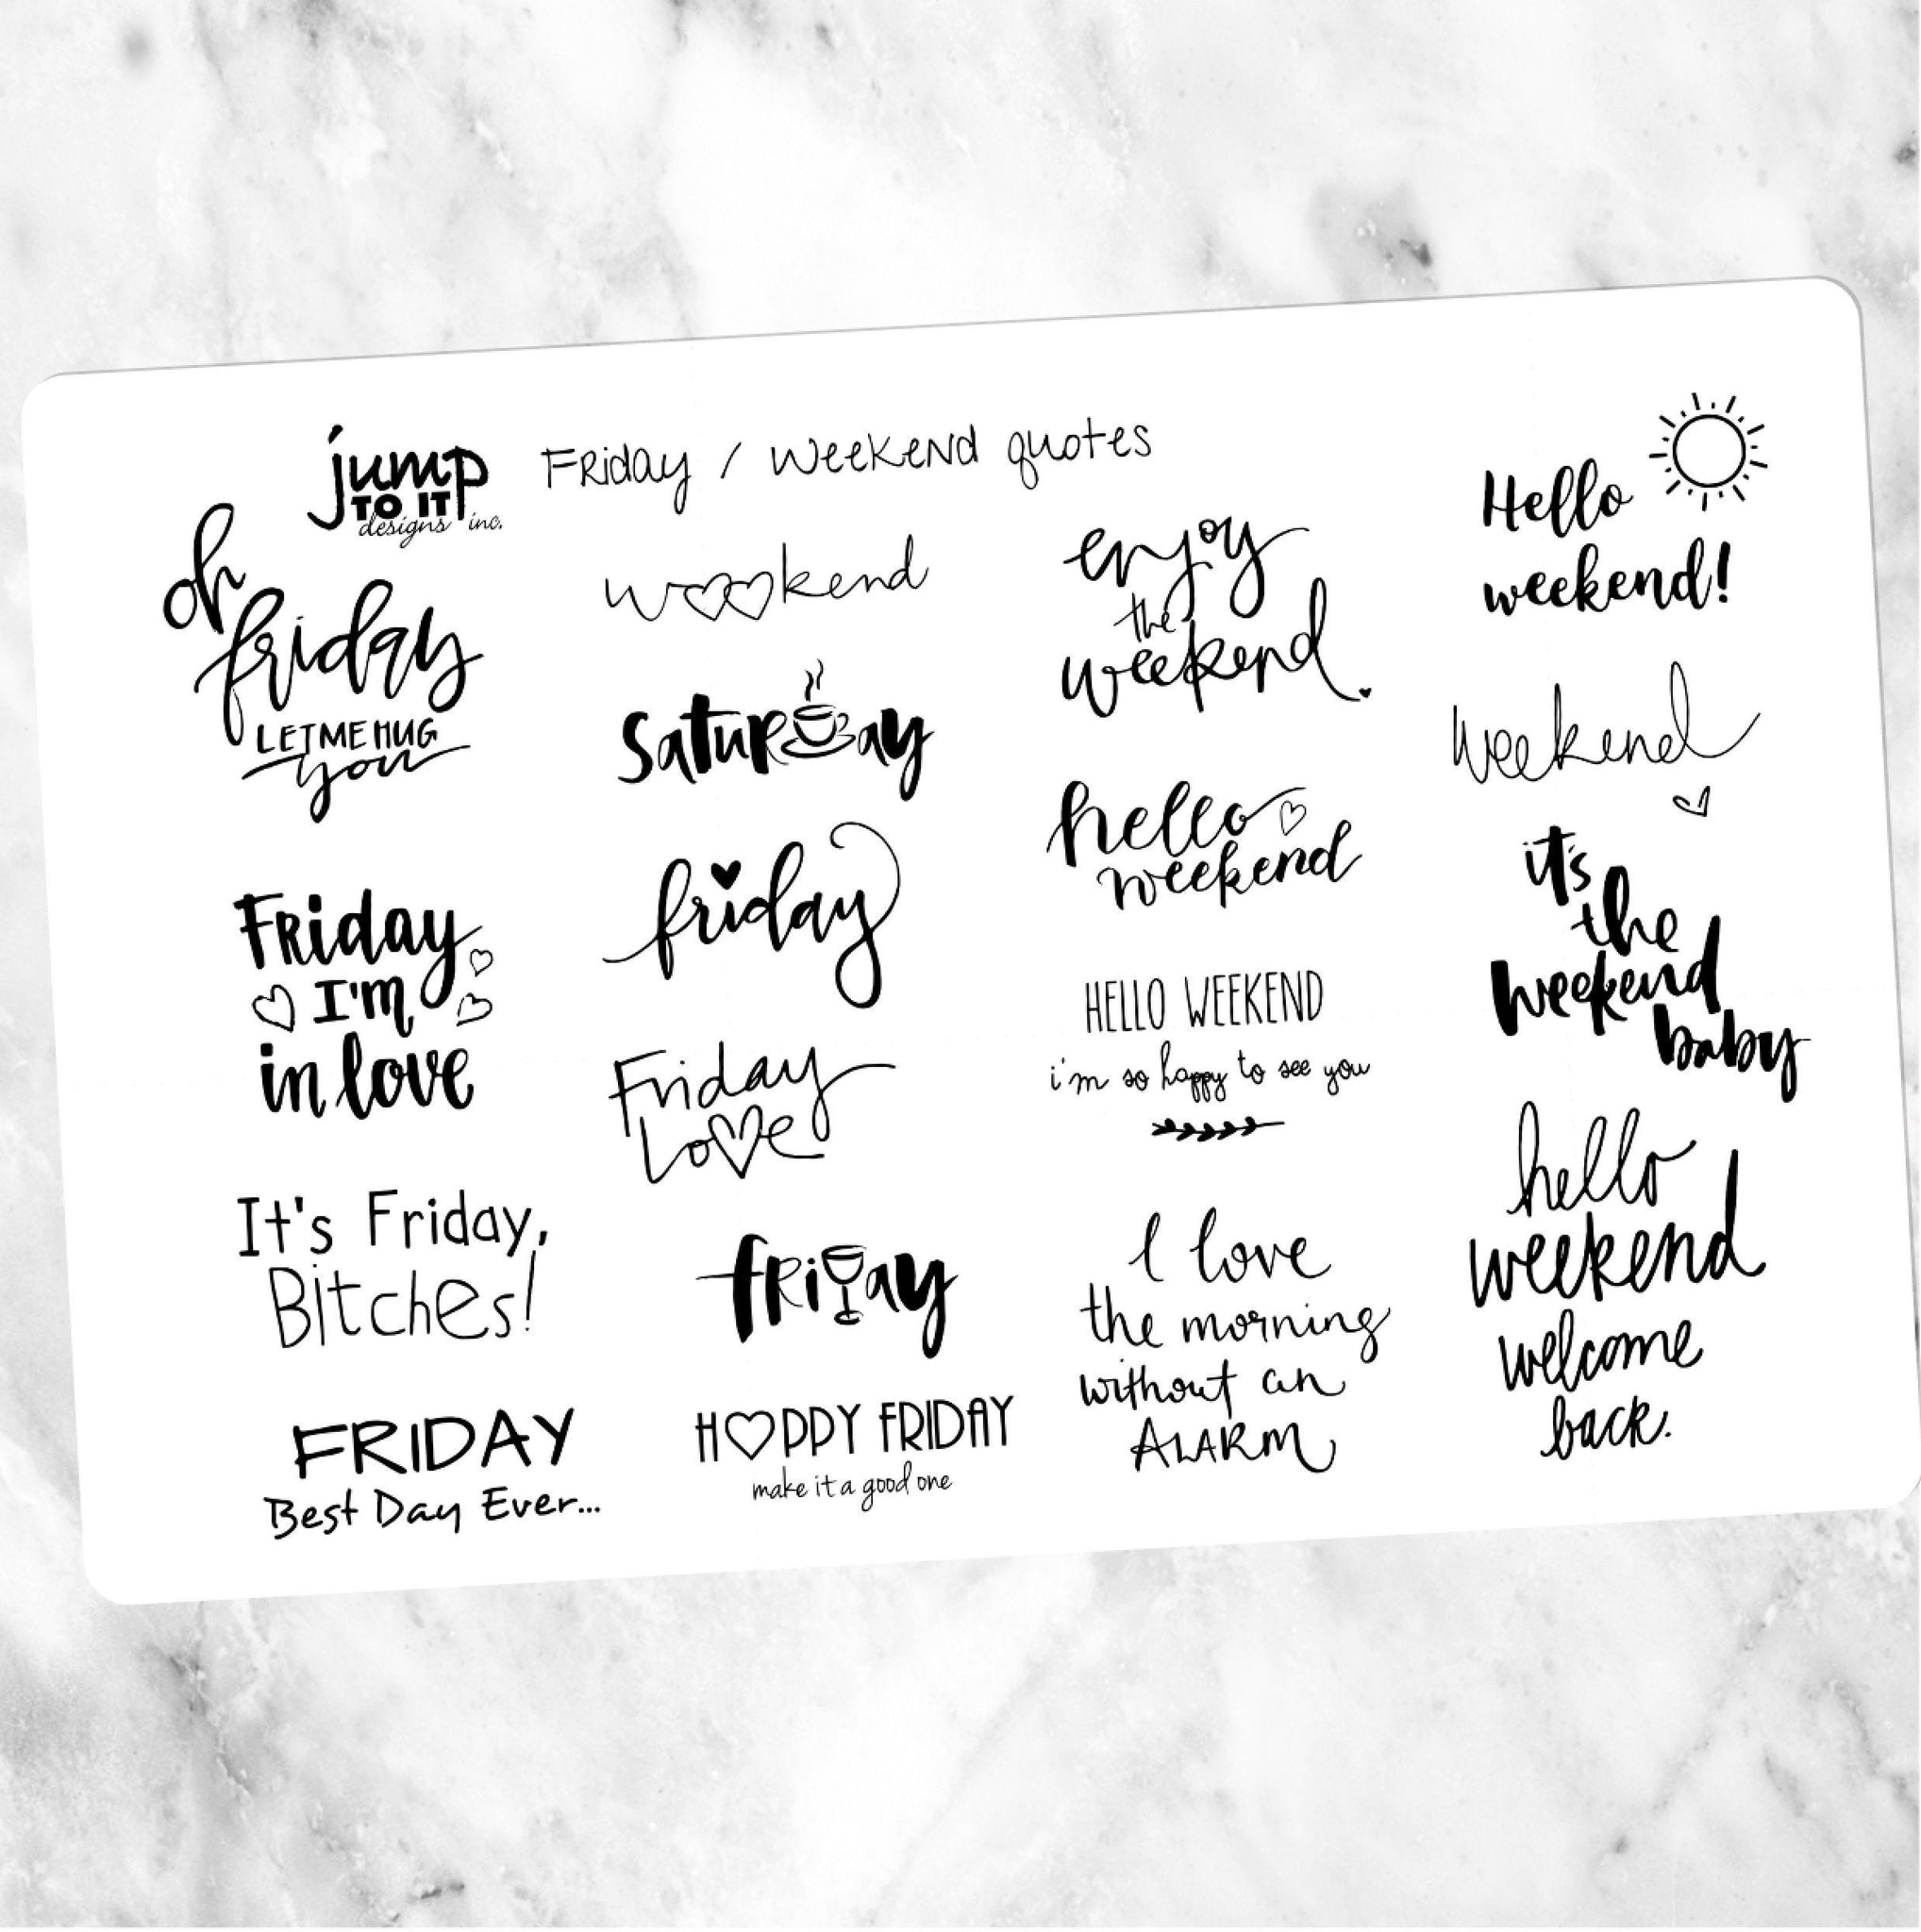 jump
TO IT
designs inc.
Friday / Weekend quotes
oh
friday
LET ME HUG
you
Friday
I'm
in love
It's Friday,
Bitches!
FRIDAY
Best Day Ever...
weekend
Saturday
friday
Friday
Love
Friday
HAPPY FRIDAY
make it a good one
enjoy
the
weekend.
hello
weekend
HELLO WEEKEND
i'm so happy to see you
I love
the morning
without an
ALARM
Hello
weekend!
Weekend
it's
the
weekend
baby
hello
weekend
welcome
back.